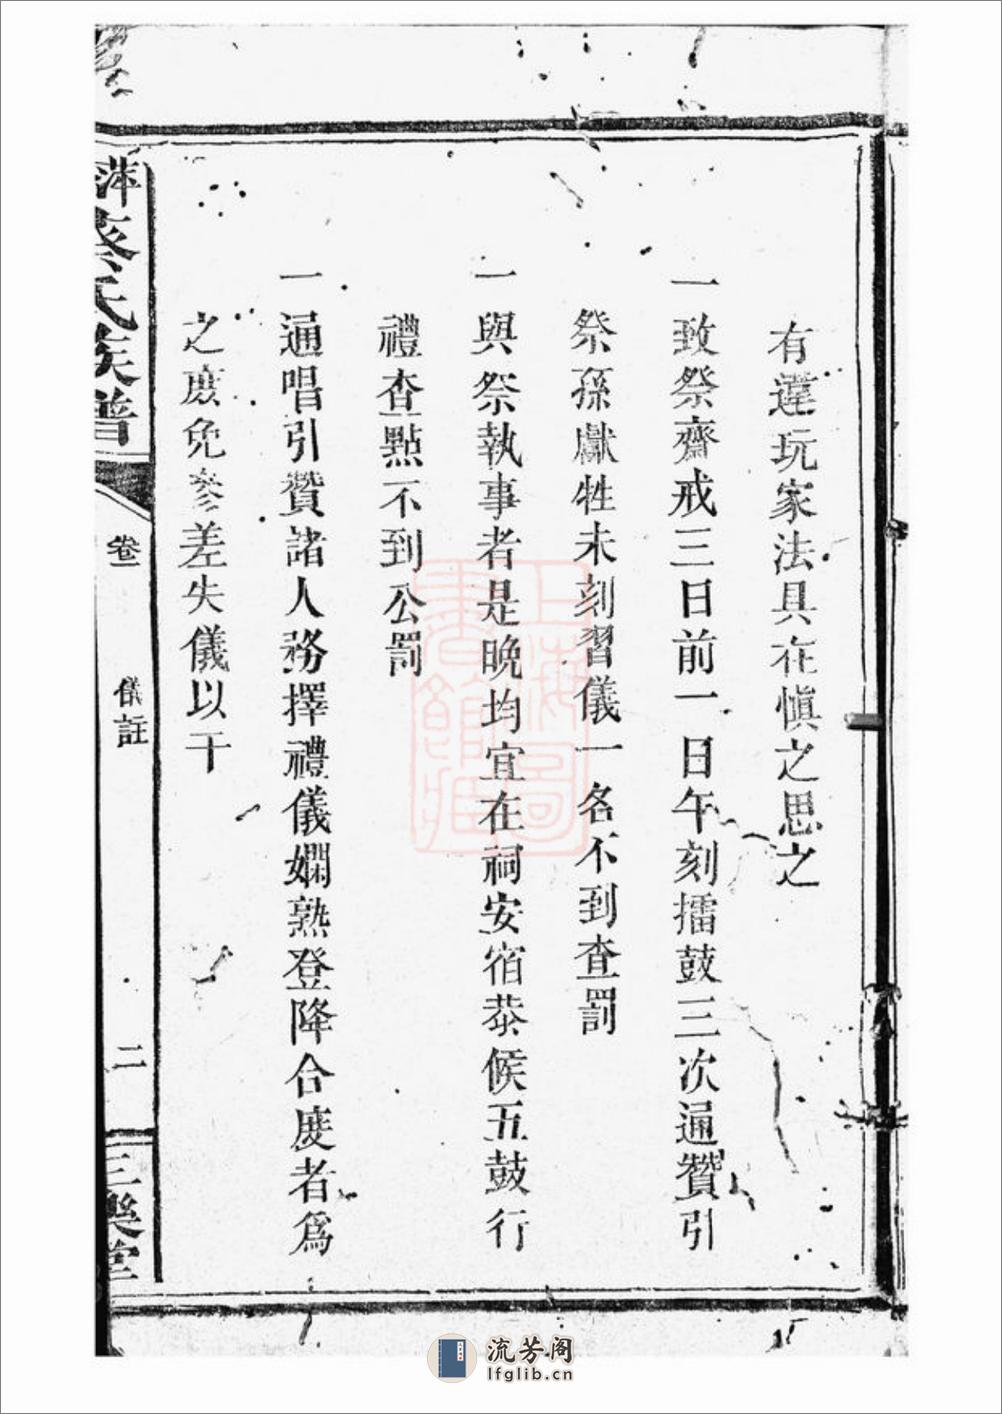 有違玩家法具在慎之思之
一致祭齋戒三日前一日午刻擂鼓三次通贊引
祭孫獻牲未刻習儀一名不到查罰
一與祭執事者是晚均宜在祠安宿恭候五鼓行
禮查點不到公罰
一通唱引贊諸人務擇禮儀嫻熟登降合度者爲
之庶免參差失儀以干
萍蔡氏族譜
卷一
儀註
二
三樂堂
上海圖書館藏
流芳阁
lfglib.cn